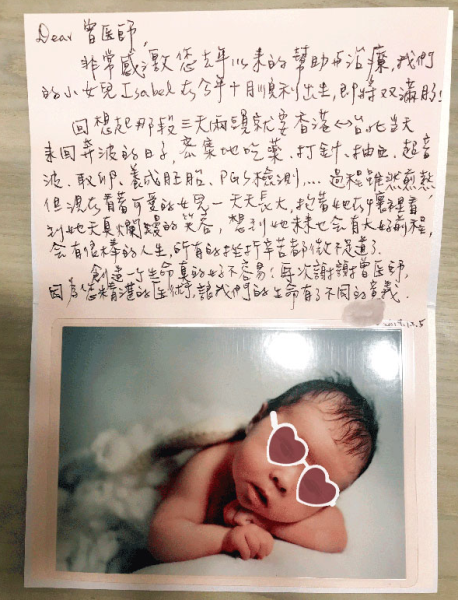 Dear 曾医師,
非常感激您去年以來的幫助与治療,我們
的小女兒Isabel在今年十月順利出生,即將双滿月!
回想起那段三天兩頭就要香港↔台北当天
來回奔波的日子,密集地吃藥、打針、抽血、超音
波、取卵、養成胚胎、PGS檢測... 過程雖然煎熬
但現在看著可愛的女兒一天天長大,抱著她在懷裡看
到她天真爛縵的笑容,想到她未來也会有大好前程,
会有很棒的人生,所有的挫折辛苦都微不足道了。
創造一个生命真的好不容易!再次謝謝曾医師,
因為您精湛的医術,讓我們的生命有了不同的意義.